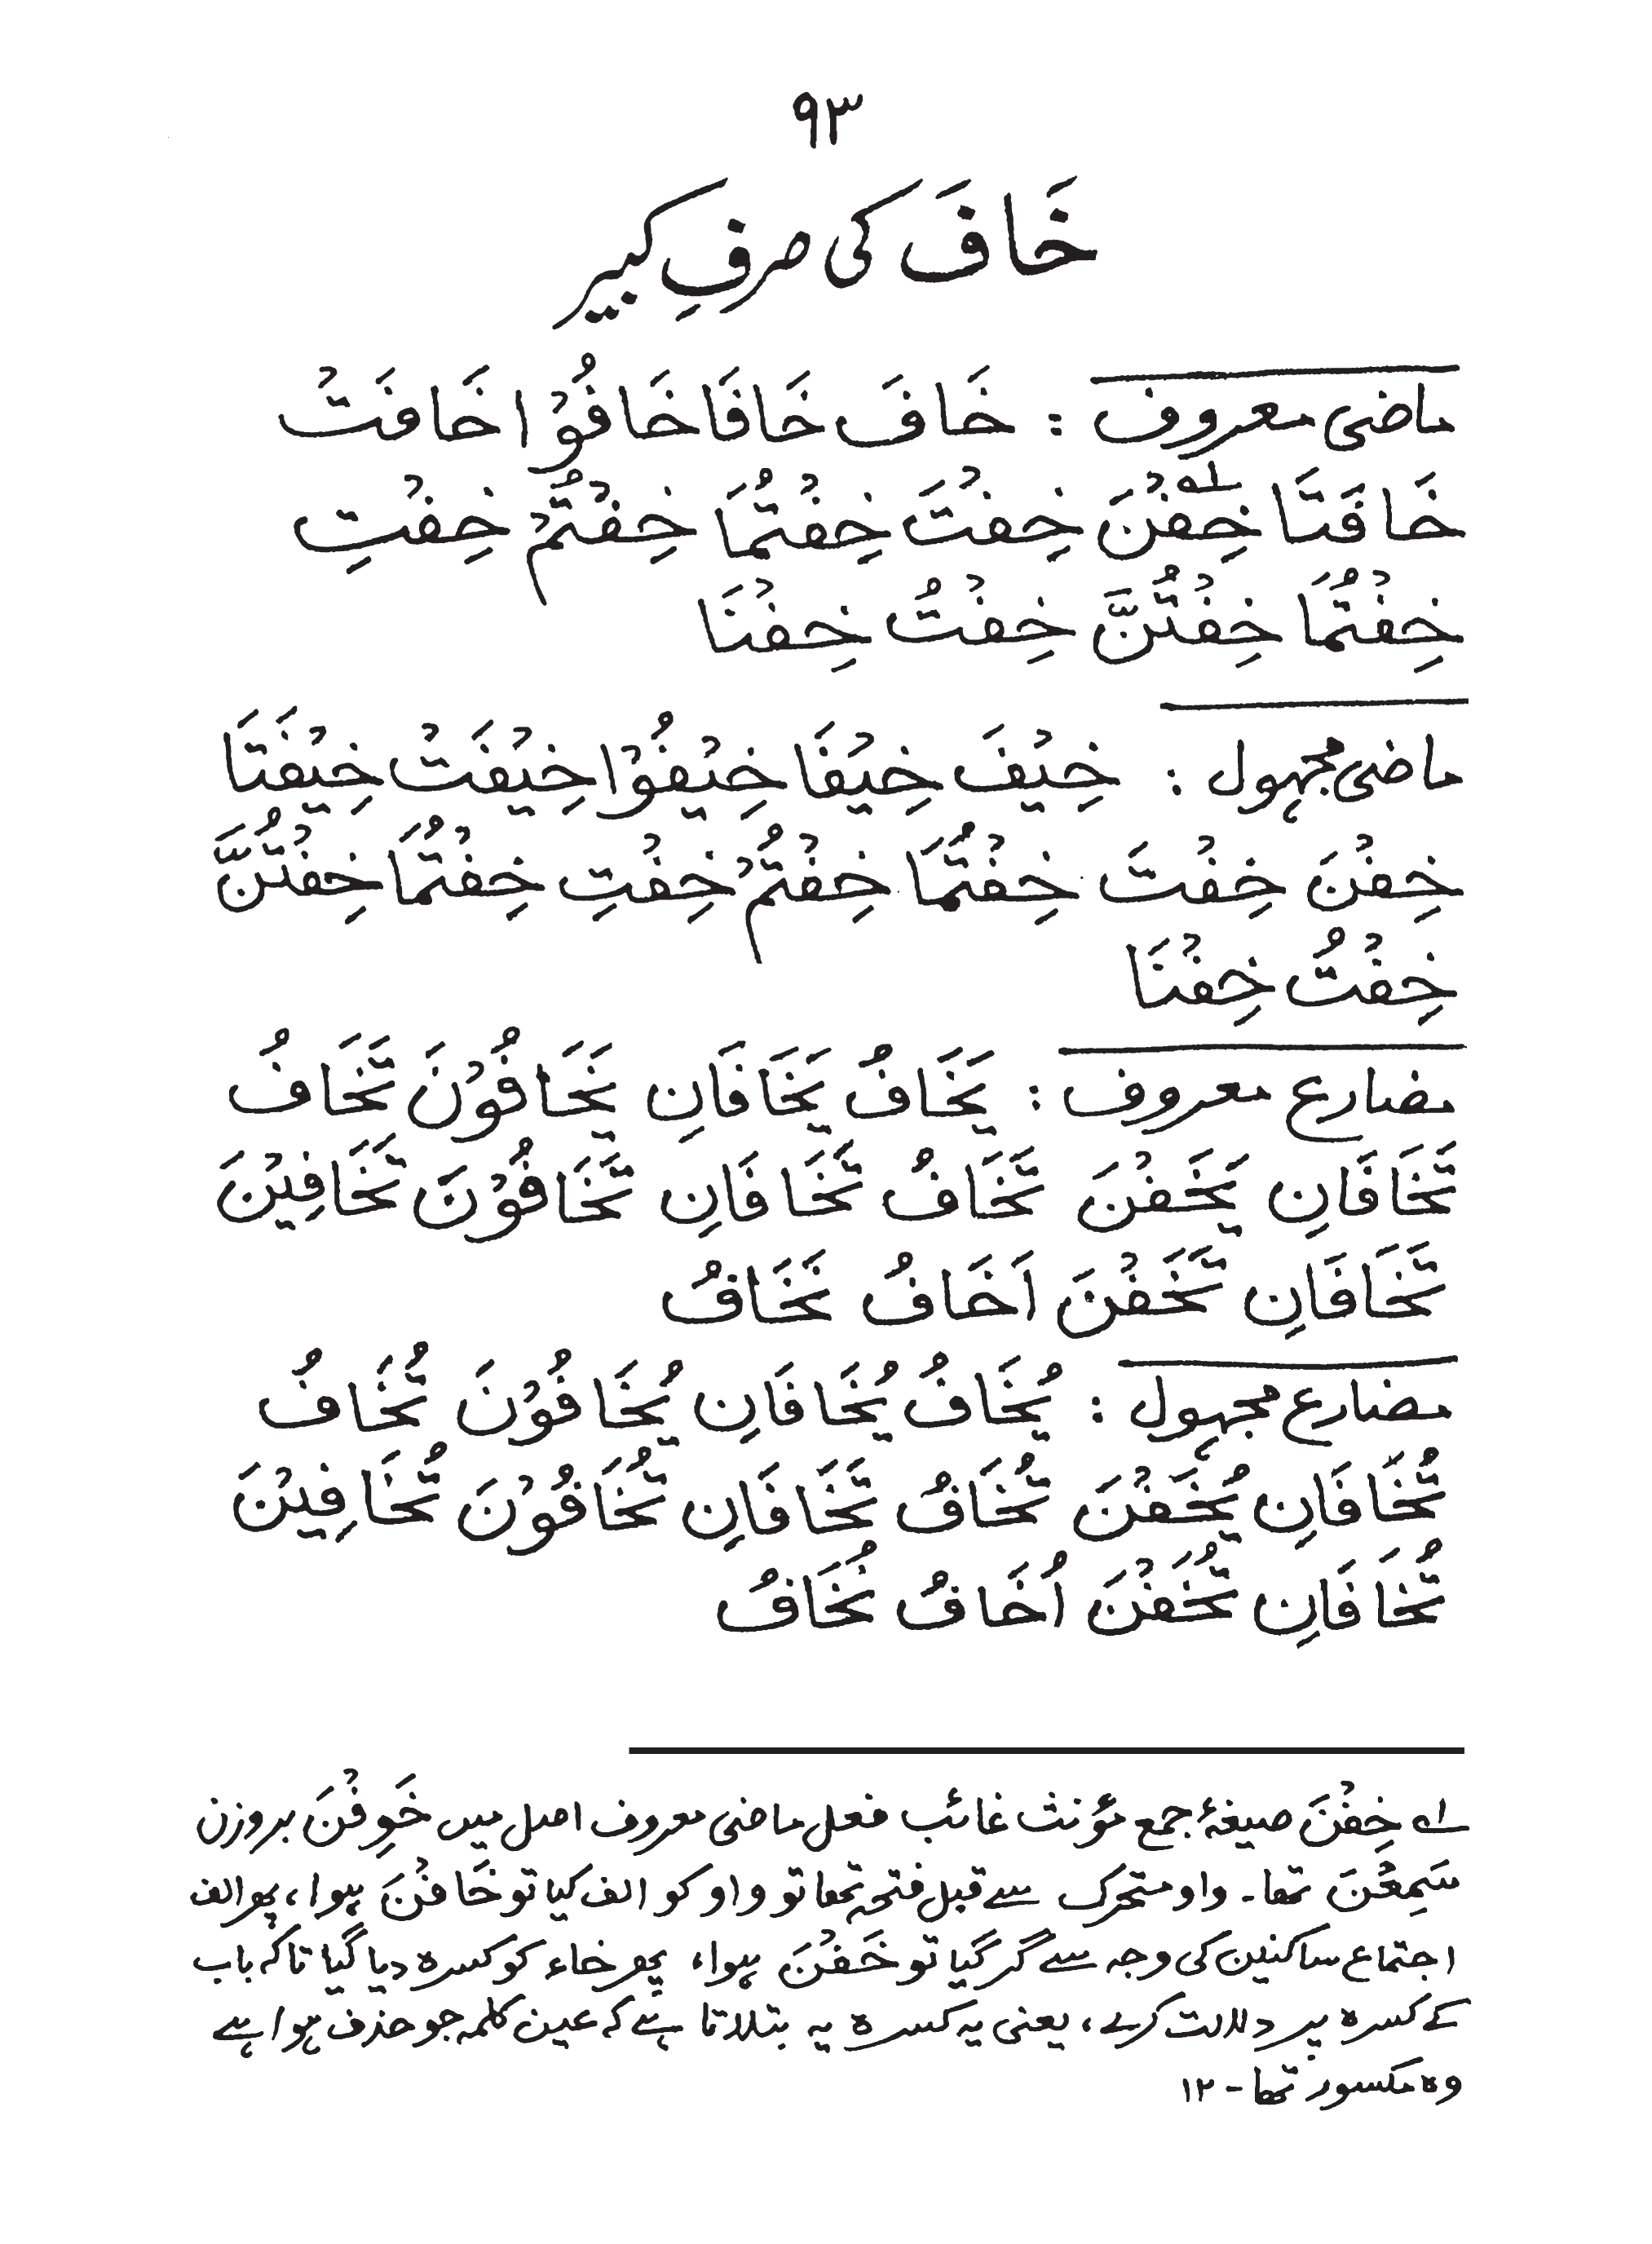 ۹۳
خَافَ کی صرفِ کبیر
ماضی معروف : خَافَ خَافَا خَافُوْا خَافَتْ
خَافَتَا خِفْنَ لہ خِفْتَ خِفْتُمَا خِفْتُمْ خِفْتِ
خِفْتُمَا خِفْتُنَّ خِفْتُ خِفْنَا
ماضی مجہول : خِيْفَ خِيْفَا خِيْفُوْا خِيْفَتْ خِيْفَتَا
خِفْنَ خِفْتَ خِفْتُمَا خِفْتُمْ خِفْتِ خِفْتُمَا خِفْتُنَّ
خِفْتُ خِفْنَا
مضارع معروف : يَخَافُ يَخَافَانِ يَخَافُوْنَ تَخَافُ
تَخَافَانِ يَخَفْنَ تَخَافُ تَخَافَانِ تَخَافُوْنَ تَخَافِيْنَ
تَخَافَانِ تَخَفْنَ اَخَافُ نَخَافُ
مضارع مجہول : يُخَافُ يُخَافَانِ يُخَافُوْنَ تُخَافُ
تُخَافَانِ يُخَفْنَ تُخَافُ تَخَافَانِ تُخَافُوْنَ تُخَافِيْنَ
تُخَافَانِ تُخَفْنَ اُخَافُ نُخَافُ
لہ خِفْنَ صیغۂ جمع مؤنث غائب فعل ماضی معروف اصل میں خَوِفْنَ بروزن
سَمِعْنَ تھا۔ واو متحرک سے قبل فتحہ تھا تو واو کو الف کیا تو خَافْنَ ہوا، پھر الف
اجتماع ساکنین کی وجہ سے گر گیا تو خَفْنَ ہوا، پھر خاء کو کسرہ دیا گیا تاکہ باب
کے کسرہ پر دلالت کرے، یعنی یہ کسرہ یہ بتلاتا ہے کہ عین کلمہ جو حذف ہوا ہے
وہ مکسور تھا۔ ۱۲